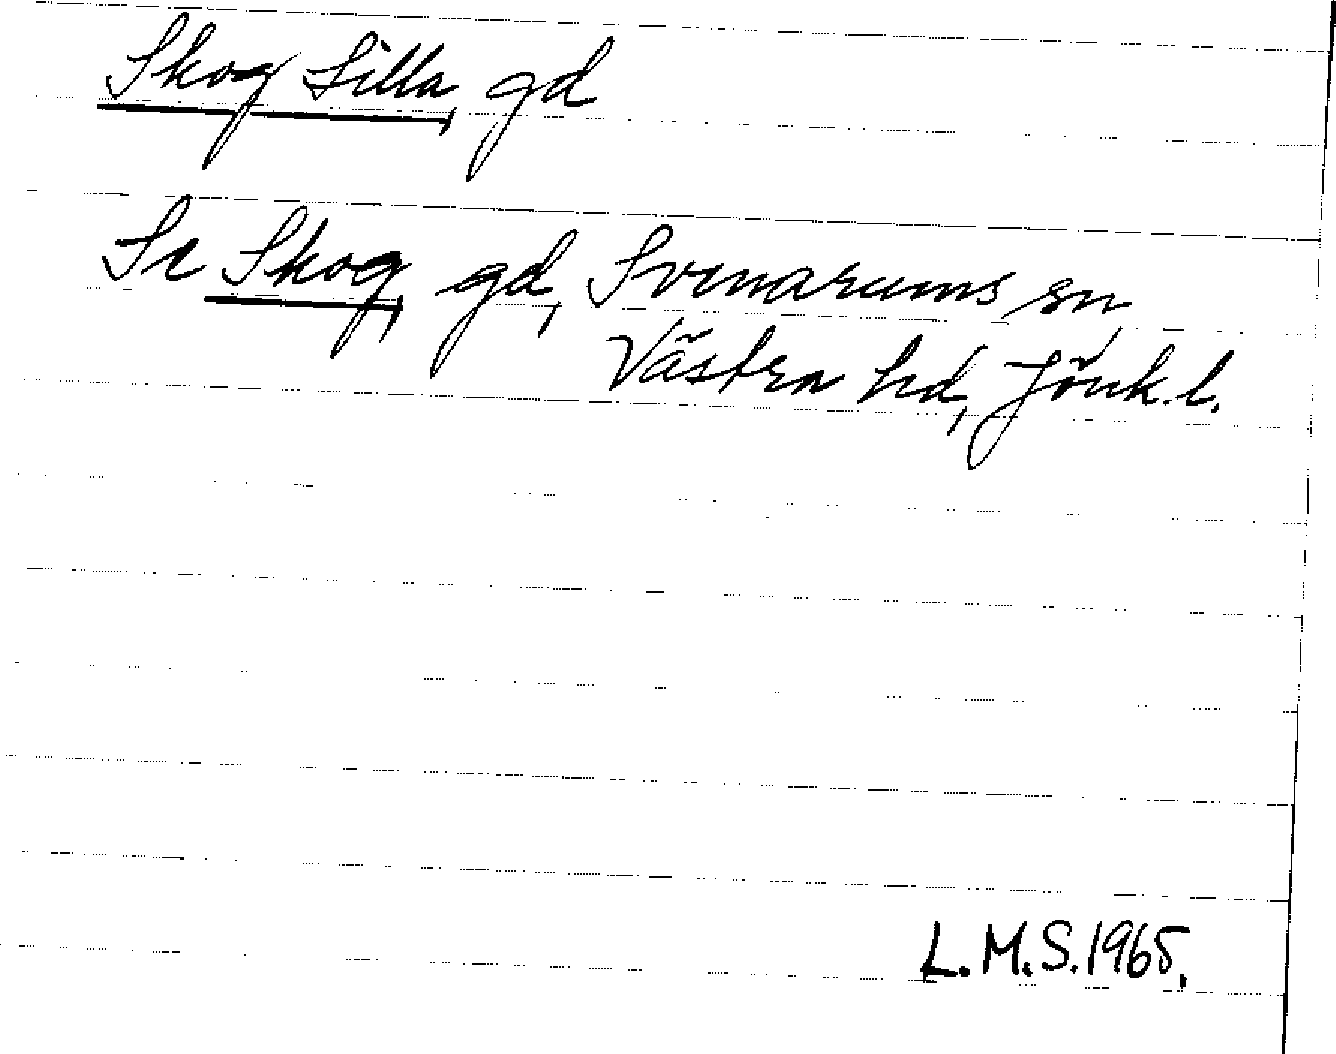 Skog Lilla, gd
Se Skog, gd, Svenarums sn,
Västra hd, Jönk. l.
L.M.S. 1965.